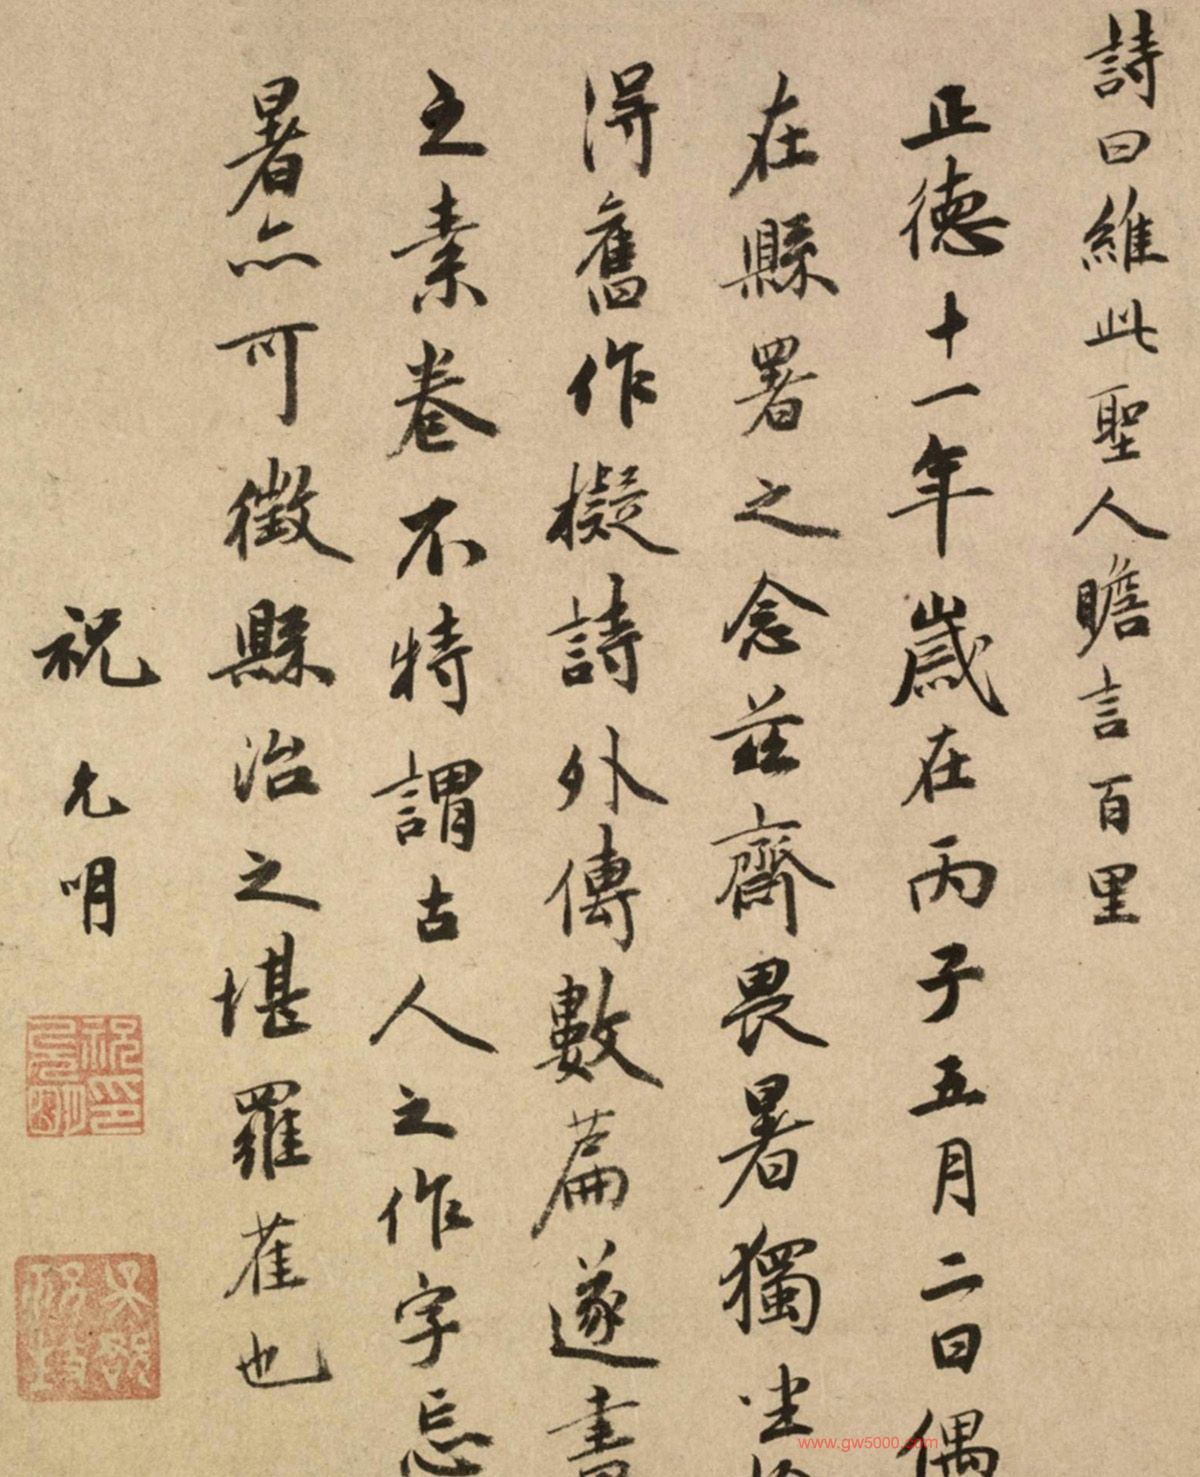 詩曰維此聖人瞻言百里
正德十一年歲在丙子五月二日偶
在縣署之念莊齋畏暑獨坐檢
得舊作擬詩外傳數篇遂書
之素卷不特謂古人之作字忘
暑亦可徵縣治之堪羅雀也
祝允明
祝允明印
www.gw5000.com